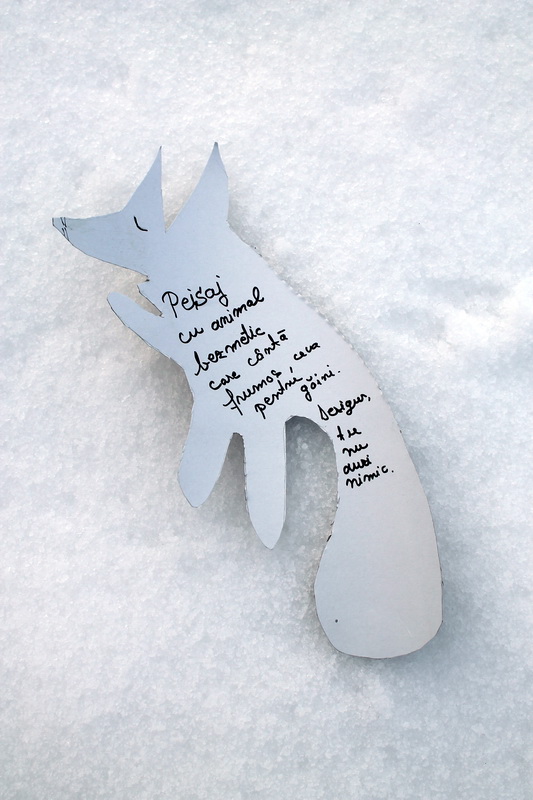 Peisaj
cu animal
bezmetic
care cântă
frumos, ceva
pentru găini.
Desigur,
tu
nu
auzi
nimic.